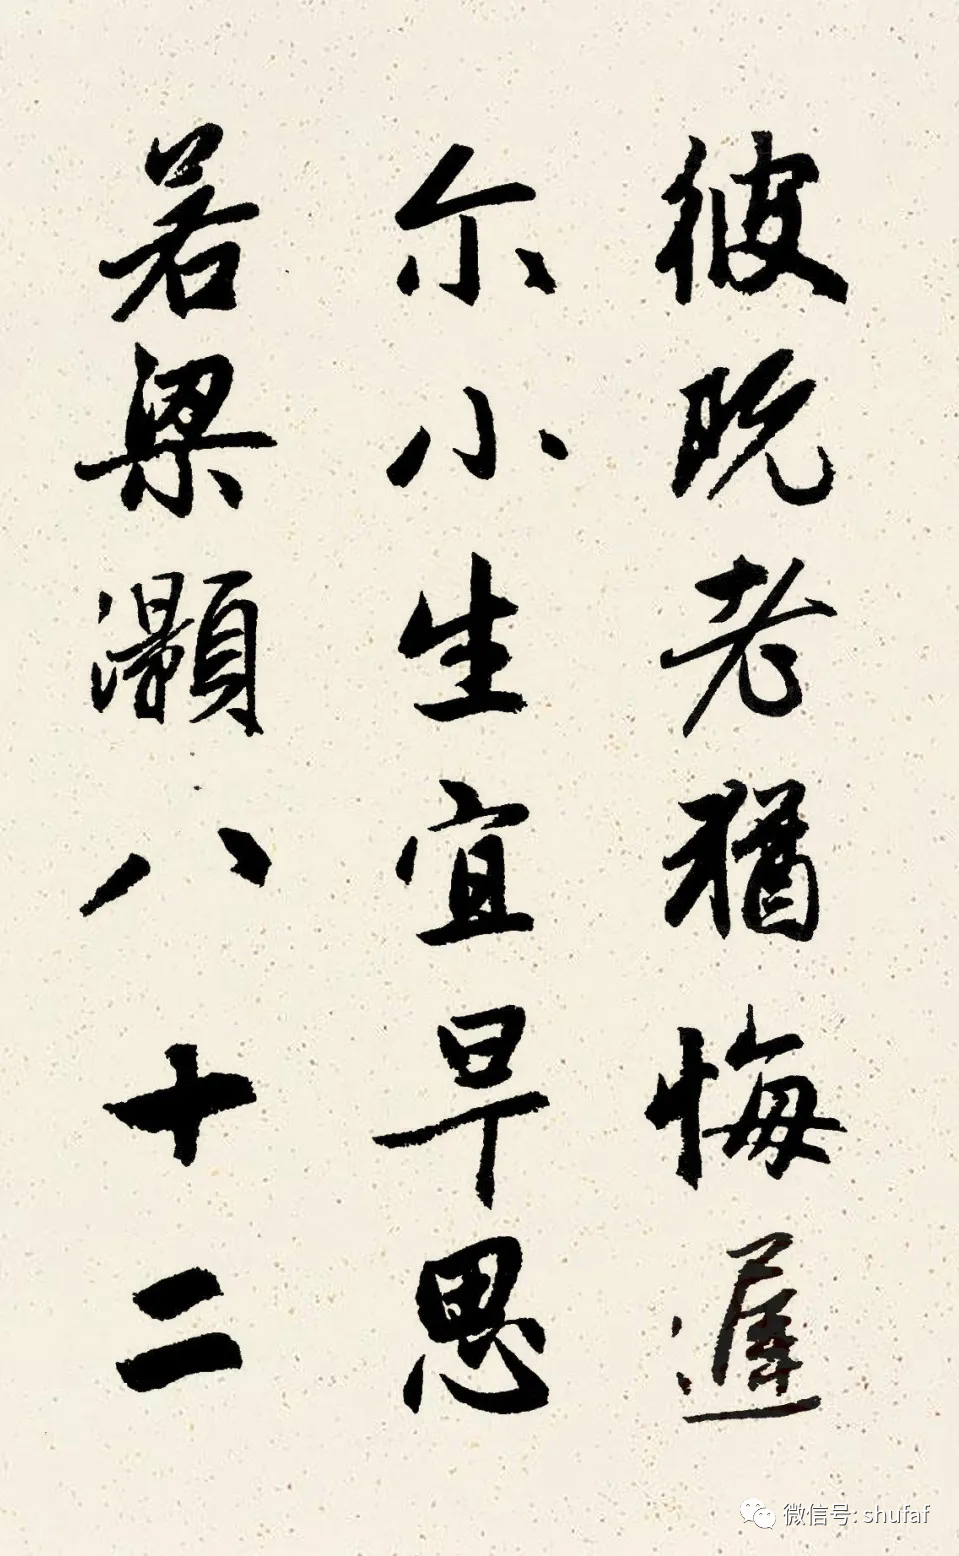 彼既老猶悔遲
尔小生宜早思
若梁灝八十二
微信号: shufaf